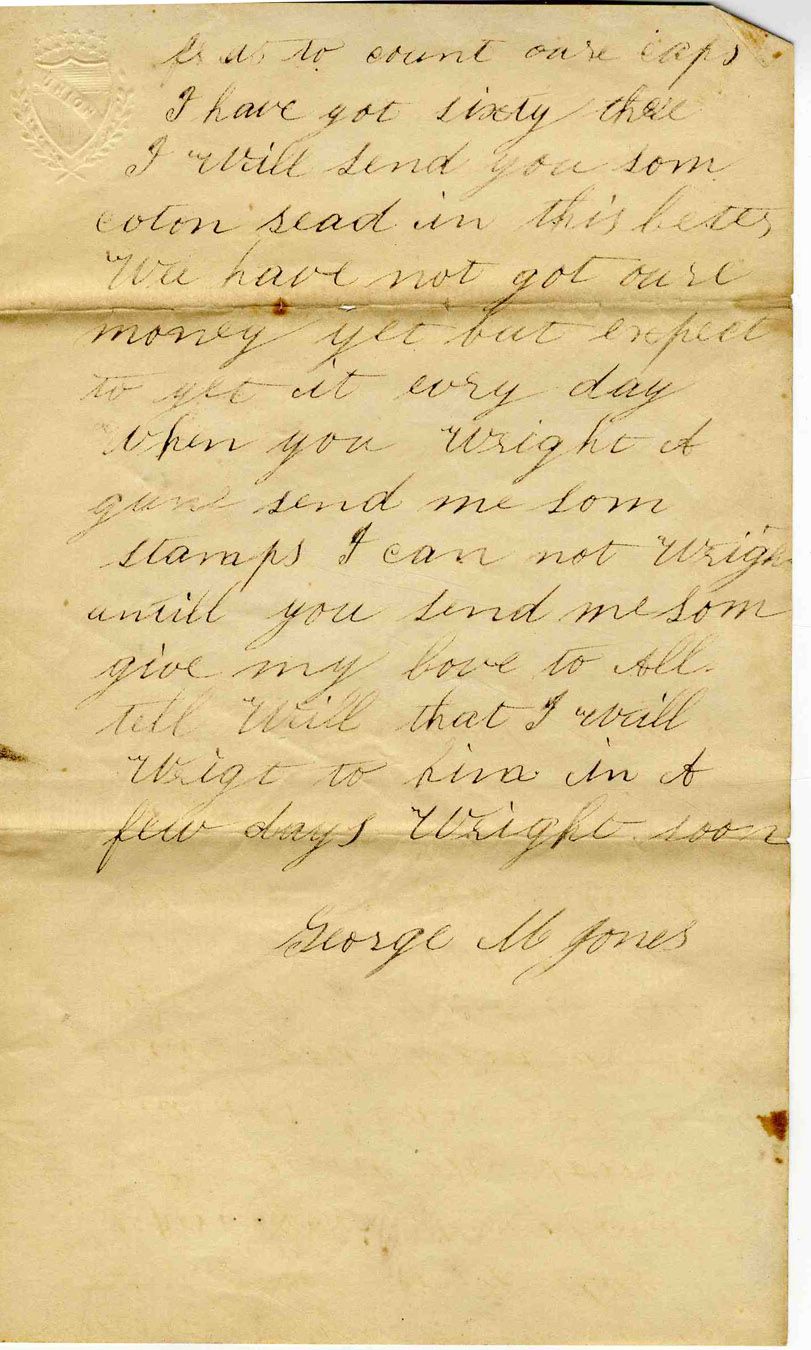 UNION
to count oure caps
I have got sixty three
I Will send you som
coton sead in this letter
We have not got oure
money yet but expect
to get it evry day
When you Wright A
gune send me som
stamps I can not Wrigh
untill you send me som
give my love to All
tell Will that I will
Wrigt to him in A
few days Wright soon
George M Jones